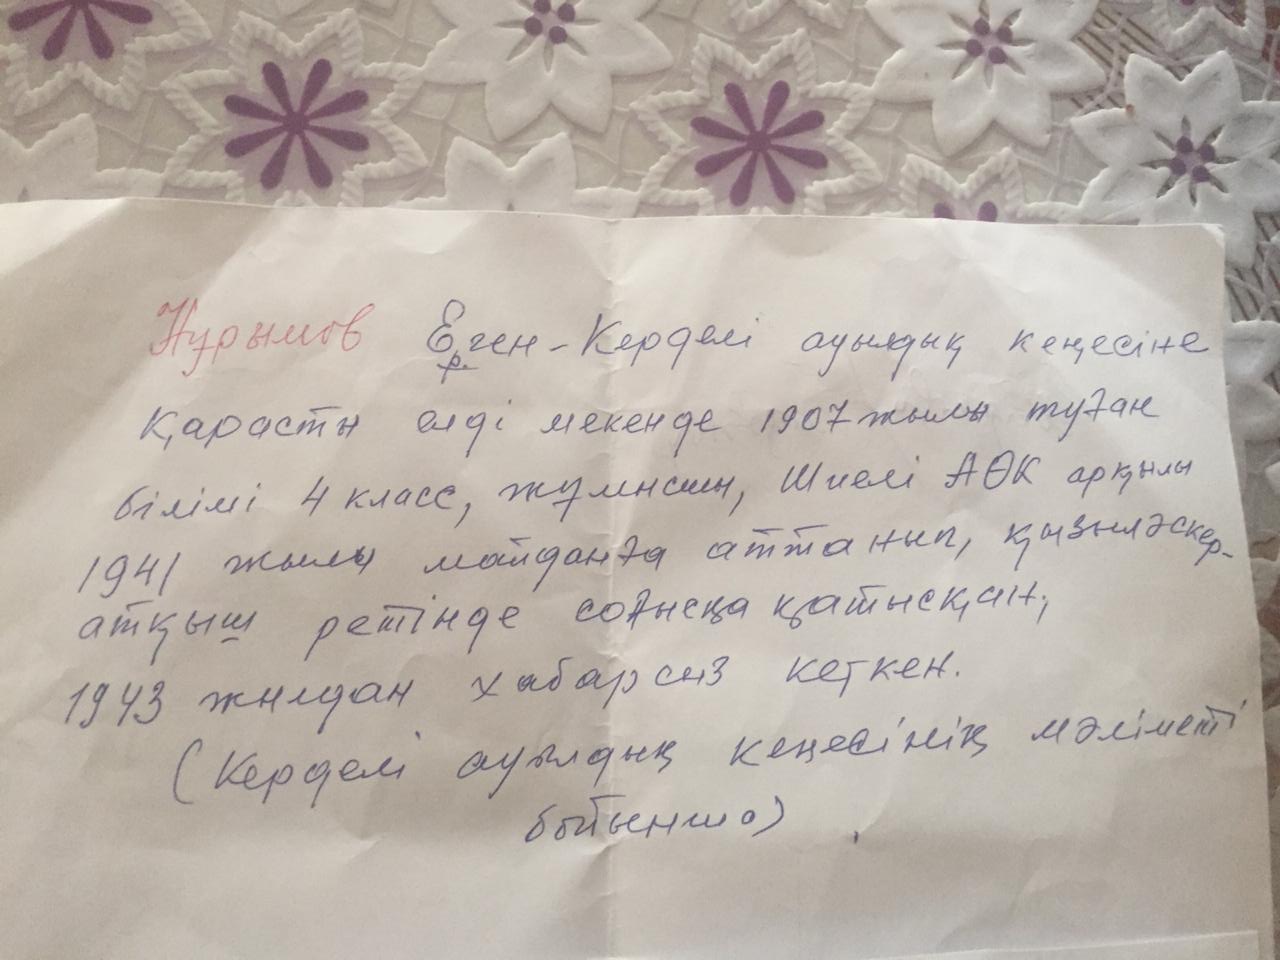 Нұрымов Ерген - Керделі ауылдық кеңесіне
қарасты елді мекенде 1907 жылы туған
білімі 4 класс, жұмысшы, Шиелі АӘК арқылы
1941 жылы майданға аттанып, қызыләскер-
атқыш ретінде соғысқа қатысқан,
1943 жылдан хабарсыз кеткен.
(Керделі ауылдық кеңесінің мәліметі
бойынша)